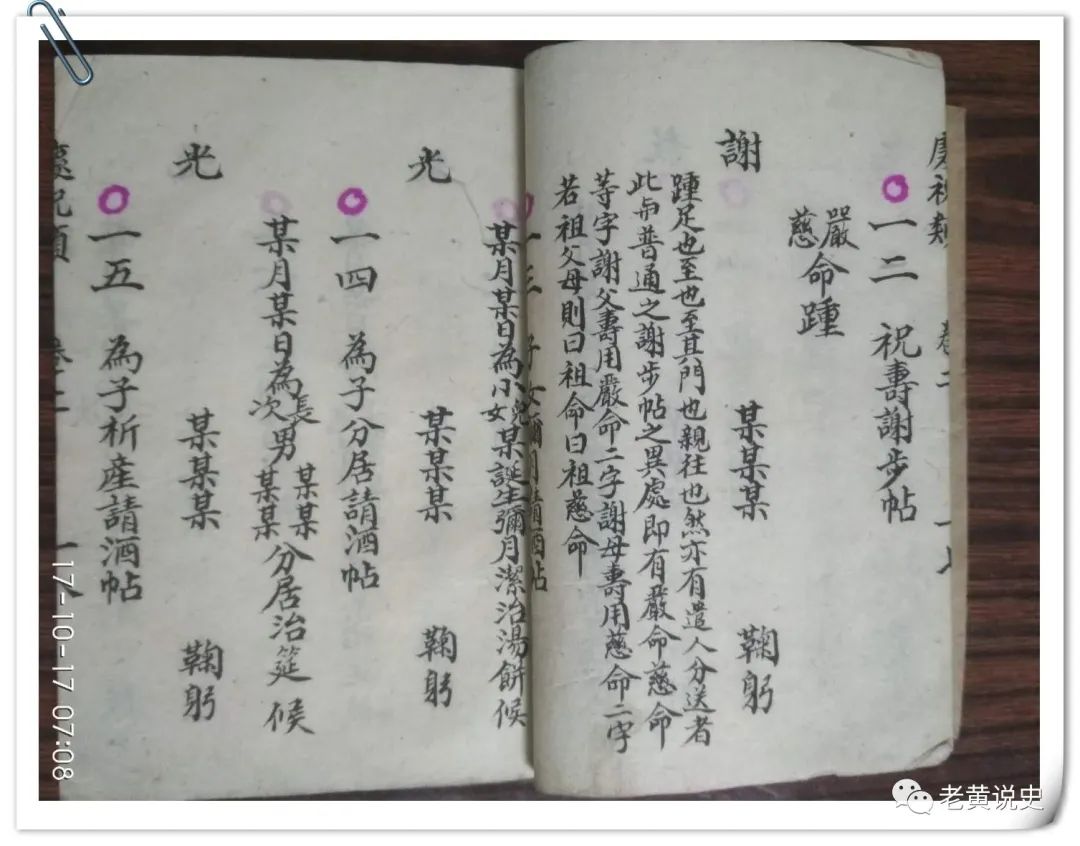 慶祝類 卷二 一七
一二 祝壽謝步帖
嚴慈命踵
謝 某某某 鞠躬
踵足也至也至其門也親往也然亦有遣人分送者
此与普通之謝步帖之異處即有嚴命慈命
等字謝父壽用嚴命二字謝母壽用慈命二字
若祖父母則曰祖命曰祖慈命
一三 子女彌月請酒帖
某月某日為小兒女某誕生彌月潔治湯餅候
光 某某某 鞠躬
一四 為子分居請酒帖
某月某日為長次男某某某某分居治筵候
光 某某某 鞠躬
一五 為子析產請酒帖
慶祝類 卷二 一八
17-10-17 07:08
老黄说史